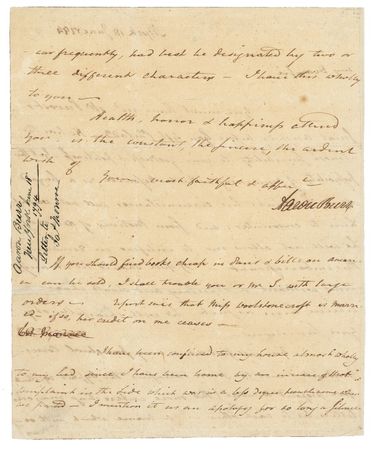 -cur frequently, had best be designated by two or
three different characters — I leave this wholly
to you —
Health, honor & happiness attend
you — is the constant, the sincere, the ardent
wish of
Your most faithful & affec
Aaron Burr
Aaron Burr
New York June 18
1794
Letter to
Jas Monroe
If you should find books cheap in Paris & bills on
can be sold I shall trouble you or Mr S. with large
orders — report says that Miss Woolstonecroft is marri
ed — if so, her credit on me ceases —
I have been confined to my house almost wholly
to my bed since I have been home by an increase of that
complaint in the side which was in a less degree troublesome when
— I mention it as an apology for so long a silence